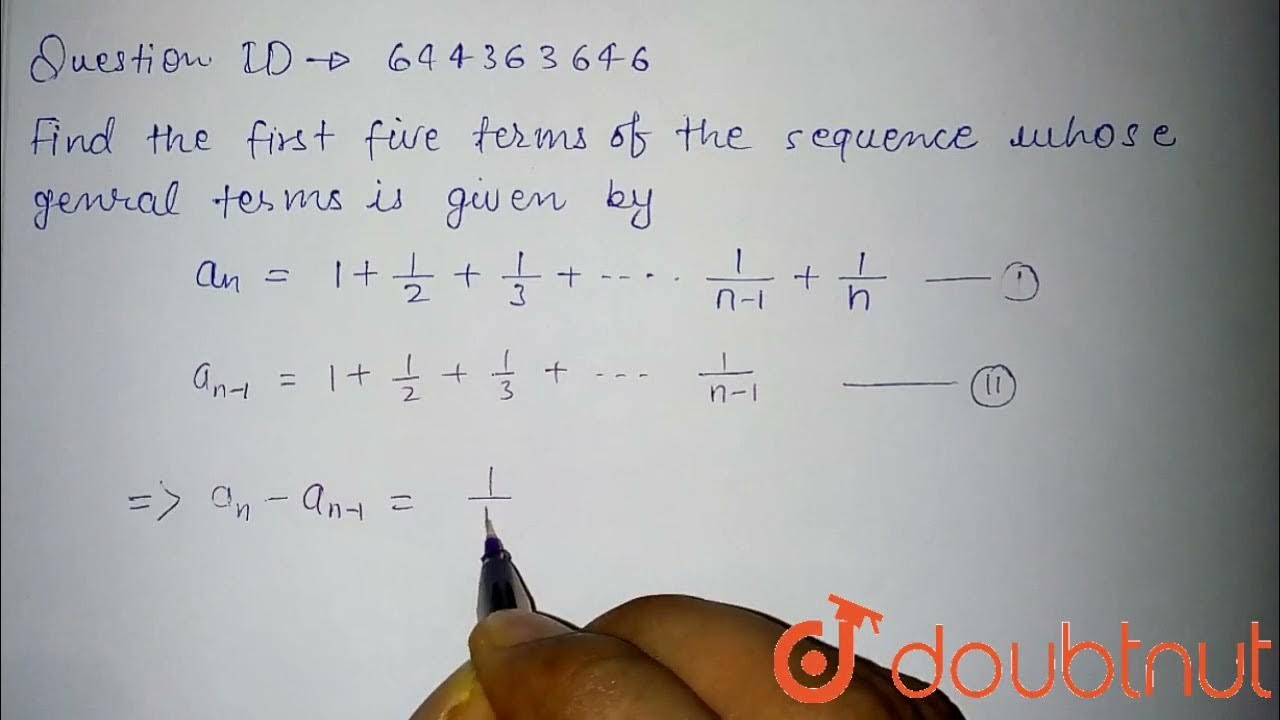 Question ID → 644363646
Find the first five terms of the sequence whose
genral terms is given by
aₙ = 1 + 1/2 + 1/3 + ---·· 1/(n-1) + 1/n — I
aₙ₋₁ = 1 + 1/2 + 1/3 + --- 1/(n-1) — II
=> aₙ - aₙ₋₁ = 1/
doubtnut